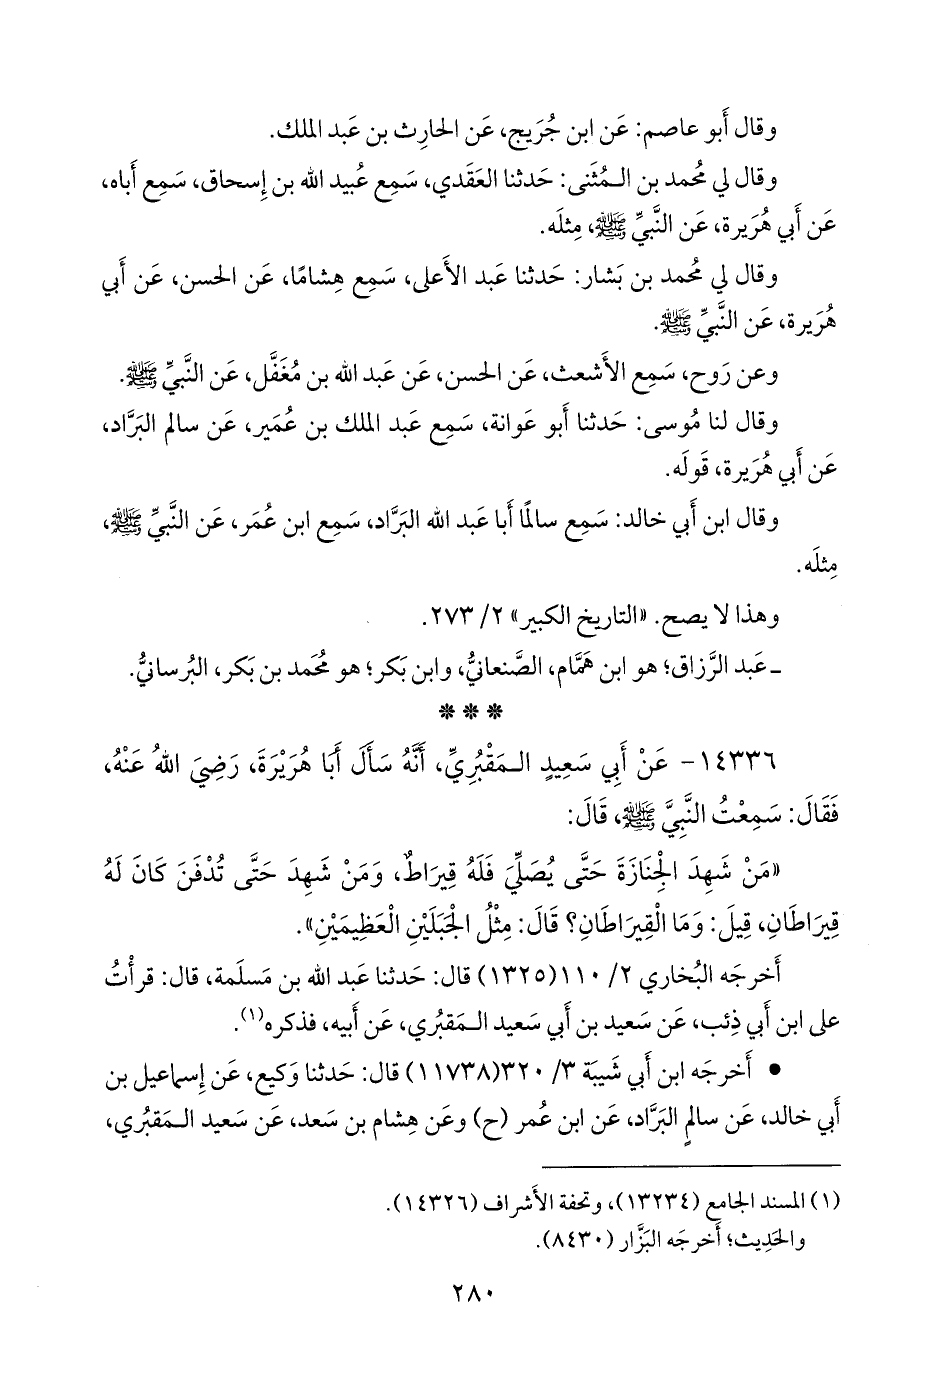 وقال أَبو عاصم: عَن ابن جُرَيج، عَن الحارِث بن عَبد الملك.
وقال لي مُحمد بن المُثَنى: حَدثنا العَقَدي، سَمِع عُبيد الله بن إِسحاق، سَمِع أَباه،
عَن أَبي هُرَيرة، عَن النَّبيِّ ﷺ، مِثلَه.
وقال لي مُحمد بن بَشار: حَدثنا عَبد الأَعلى، سَمِع هِشامًا، عَن الحسن، عَن أَبي
هُرَيرة، عَن النَّبيِّ ﷺ.
وعن رَوح، سَمِع الأَشعث، عَن الحسن، عَن عَبد الله بن مُغَفَّل، عَن النَّبيِّ ﷺ.
وقال لنا مُوسى: حَدثنا أَبو عَوانة، سَمِع عَبد الملك بن عُمَير، عَن سالم البَرَّاد،
عَن أَبي هُرَيرة، قَولَه.
وقال ابن أَبي خالد: سَمِع سالمًا أَبا عَبد الله البَرَّاد، سَمِع ابن عُمَر، عَن النَّبيِّ ﷺ،
مِثلَه.
وهذا لا يصح. «التاريخ الكبير» ٢/ ٢٧٣.
ـ عَبد الرَّزاق؛ هو ابن هَمَّام، الصَّنعانيُّ، وابن بَكر؛ هو مُحَمد بن بَكر، البُرسانيُّ.
* * *
١٤٣٣٦- عَنْ أَبِي سَعِيدٍ المَقْبُرِيِّ، أَنَّهُ سَأَلَ أَبَا هُرَيْرَةَ، رَضِيَ اللهُ عَنْهُ،
فَقَالَ: سَمِعْتُ النَّبِيَّ ﷺ، قَالَ:
«مَنْ شَهِدَ الْجِنَازَةَ حَتَّى يُصَلِّيَ فَلَهُ قِيرَاطٌ، وَمَنْ شَهِدَ حَتَّى تُدْفَنَ كَانَ لَهُ
قِيرَاطَانِ، قِيلَ: وَمَا الْقِيرَاطَانِ؟ قَالَ: مِثْلُ الْجَبَلَيْنِ الْعَظِيمَيْنِ».
أَخرجَه البُخاري ٢/ ١١٠(١٣٢٥) قال: حَدثنا عَبد الله بن مَسلَمة، قال: قرأْتُ
على ابن أَبي ذِئب، عَن سَعيد بن أَبي سَعيد المَقبُري، عَن أَبيه، فذكره(١).
• أَخرجَه ابن أَبي شَيبَة ٣/ ٣٢٠(١١٧٣٨) قال: حَدثنا وَكيع، عَن إِسماعيل بن
أَبي خالد، عَن سالمٍ البَرَّاد، عَن ابن عُمر (ح) وعَن هِشام بن سَعد، عَن سَعيد المَقبُري،
(١) المسند الجامع (١٣٢٣٤)، وتحفة الأَشراف (١٤٣٢٦).
والحَدِيث؛ أَخرجَه البَزَّار (٨٤٣٠).
٢٨٠